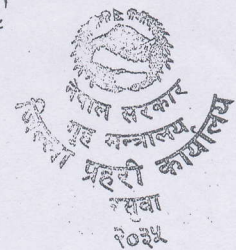 नेपाल सरकार
गृह मन्त्रालय
जिल्ला प्रहरी कार्यालय
रसुवा
२०३५